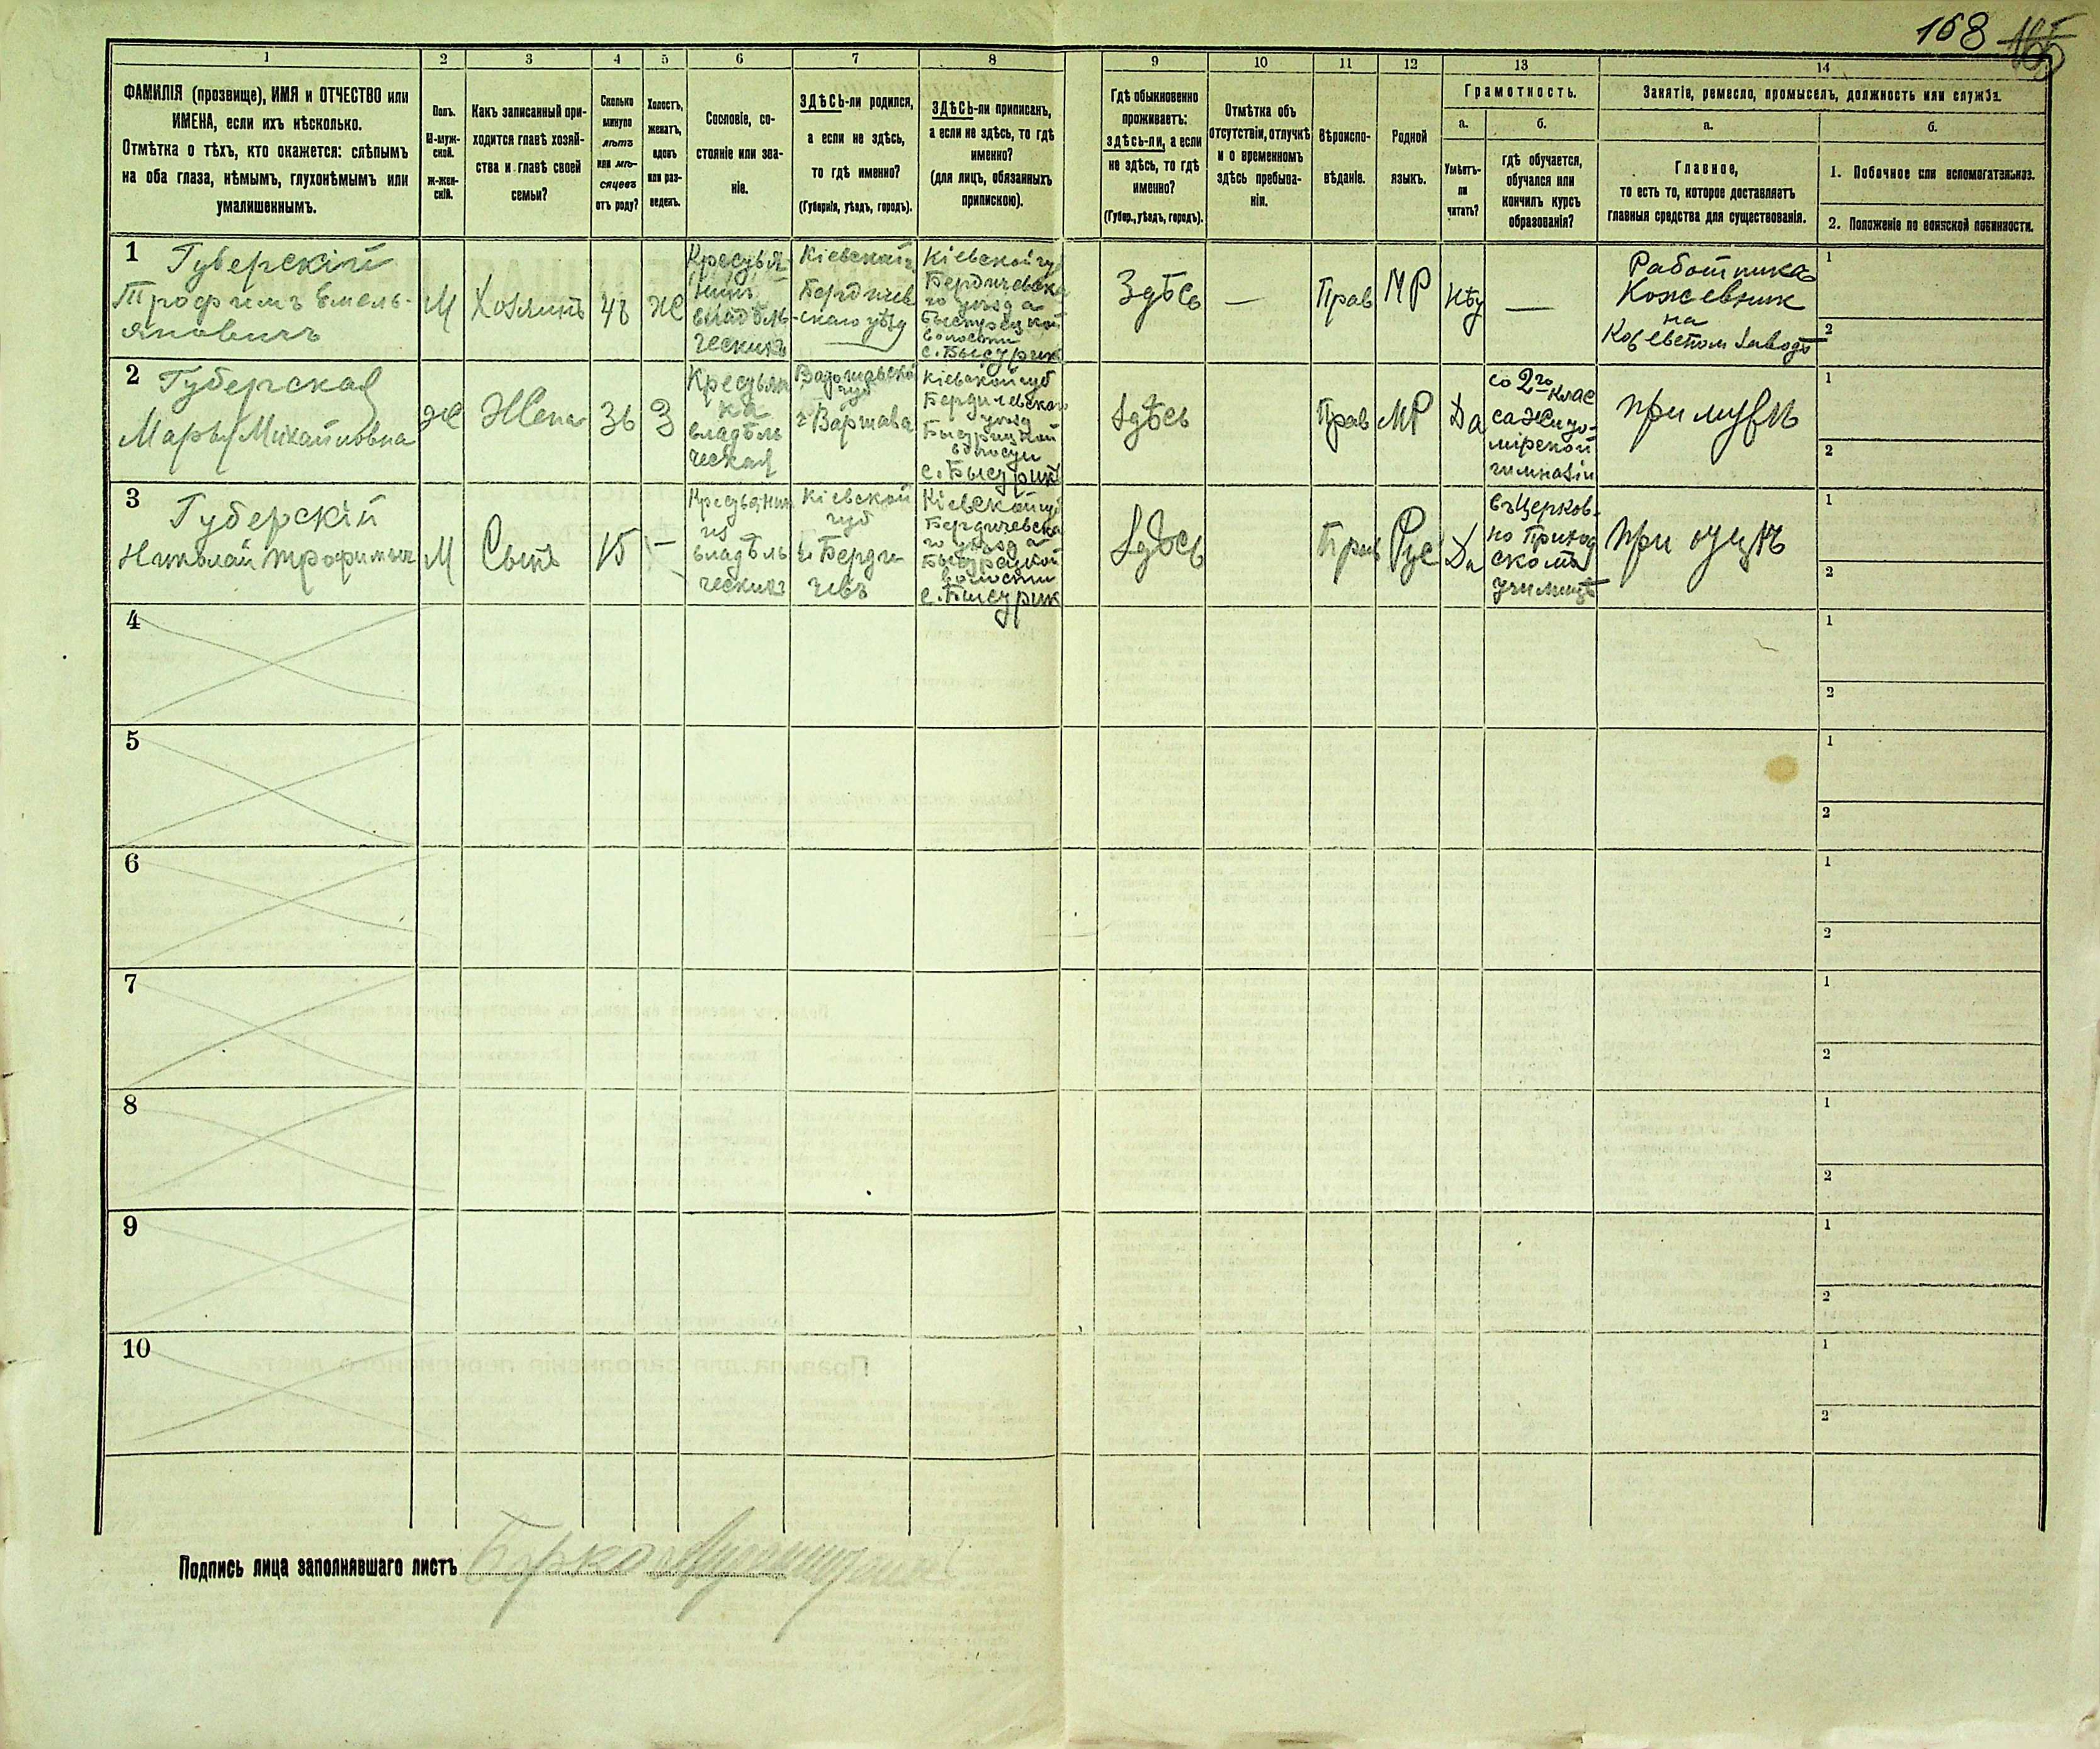 168 165
1 2 3 4 5 6 7 8 9 10 11 12 13 14
ФАМИЛІЯ (прозвище), ИМЯ и ОТЧЕСТВО или
ИМЕНА, если ихъ нѣсколько.
Отмѣтка о тѣхъ, кто окажется: слѣпымъ
на оба глаза, нѣмымъ, глухонѣмымъ или
умалишеннымъ.
Полъ.
М-муж-
ской.
Ж-жен-
скій.
Какъ записанный при-
ходится главѣ хозяй-
ства и главѣ своей
семьи?
Сколько
минуло
лѣтъ
или мѣ-
сяцевъ
отъ роду?
Холостъ,
женатъ,
вдовъ
или раз-
веденъ.
Сословіе, со-
стояніе или зва-
ніе.
ЗДѢСЬ-ли родился,
а если не здѣсь,
то гдѣ именно?
(Губернія, уѣздъ, городъ).
ЗДѢСЬ-ли приписанъ,
а если не здѣсь, то гдѣ
именно?
(для лицъ, обязанныхъ
припискою).
Гдѣ обыкновенно
проживаетъ:
здѣсь-ли, а если
не здѣсь, то гдѣ
именно?
(Губер., уѣздъ, городъ).
Отмѣтка объ
отсутствіи, отлучкѣ
и о временномъ
здѣсь пребыва-
ніи.
Вѣроиспо-
вѣданіе.
Родной
языкъ.
Грамотность.
а.
Умѣетъ-
ли
читать?
б.
гдѣ обучается,
обучался или
кончилъ курсъ
образованія?
Занятіе, ремесло, промыселъ, должность или служба.
а.
Главное,
то есть то, которое доставляетъ
главныя средства для существованія.
б.
1. Побочное или вспомогательное.
2. Положеніе по воинской повинности.
1
Губерскій
Трофимъ Емель-
яновичъ
М
Хозяинъ
Ж
Кресть я-
нинъ
владѣль
ческихъ
Кіевской г
Бердичев
-скаго уѣзд
Кіевской гу
Бердичевска
го уезда
Быстрецкой
волости
с. Быстрик
Здѣсь
—
Прав
МР
Нѣт
—
Работника
Кожевник
на
заводѣ
1
2
2
Губерская
Марья Михайловна
Ж
Жена
36
З
Крестьян
ка
владѣль
ческая
Варшавской
губ
г Варшава
Кіевской губ
Бердичевскаго
уезд
Быстрицкой
волости
с. Быстрик
Здѣсь
Прав
МР
Да
со 2го Клас
са Жито-
мірской
гимназіи
при мужѣ
1
2
3
Губерскій
Николай Трофимыч
М
Сынъ
15
—
Крестьянин
из
владѣль
ческихъ
Кіевской
губ
г Берди
чевъ
Кіевской гу
Бердичевска
го уезда
Быстрецкой
волости
с. Быстрик
Здѣсь
Прав
Рус
Да
въ Церков-
но Приход
скомъ
училищѣ
при отцѣ
1
2
4
1
2
5
1
2
6
1
2
7
1
2
8
1
2
9
1
2
10
1
2
Подпись лица заполнявшаго листъ Берко